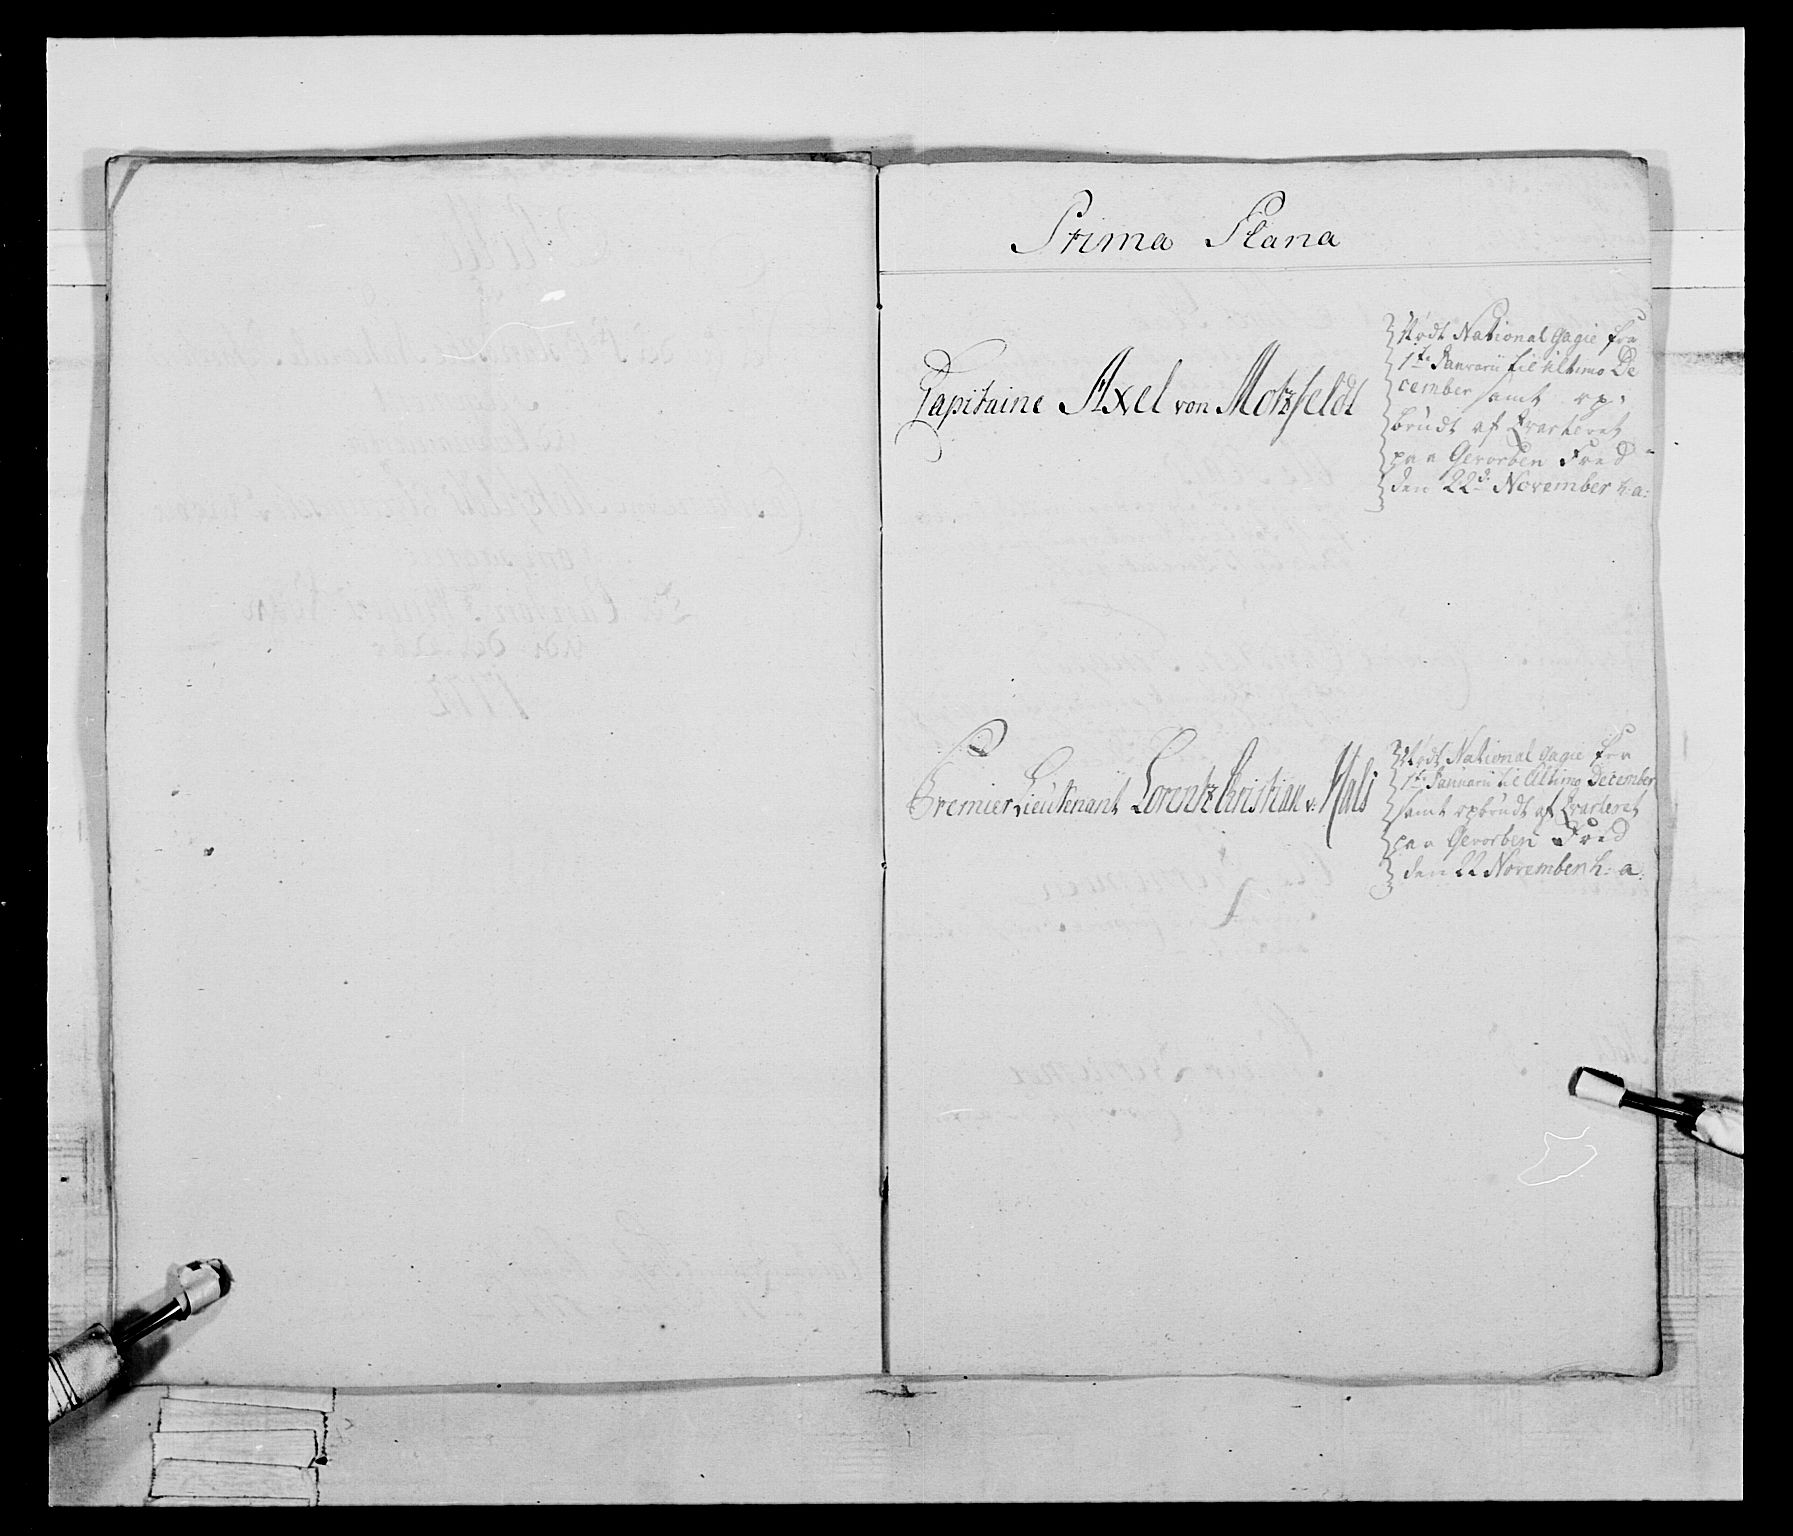 Prima Plana
Capitaine Axel von Motzfeldt
Nödt National Gagie fra
1te Januarii til ultimo De
cember samt op:
brudt af Qvarteret
paa Gevorben Foed
den 22d November h: a:
Premier Lieutenant Lorentz Christian v: Hals
Nödt National Gagie fra
1te Januarii til Ultimo December
samt opbrudt af Qvarteret
paa Gevorben Foed
den 22 November h: a: